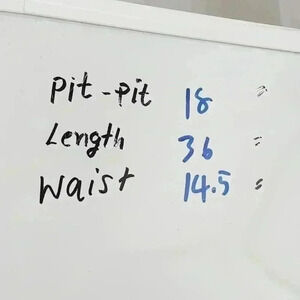 Pit-Pit 18 "
Length 36 "
Waist 14.5 "